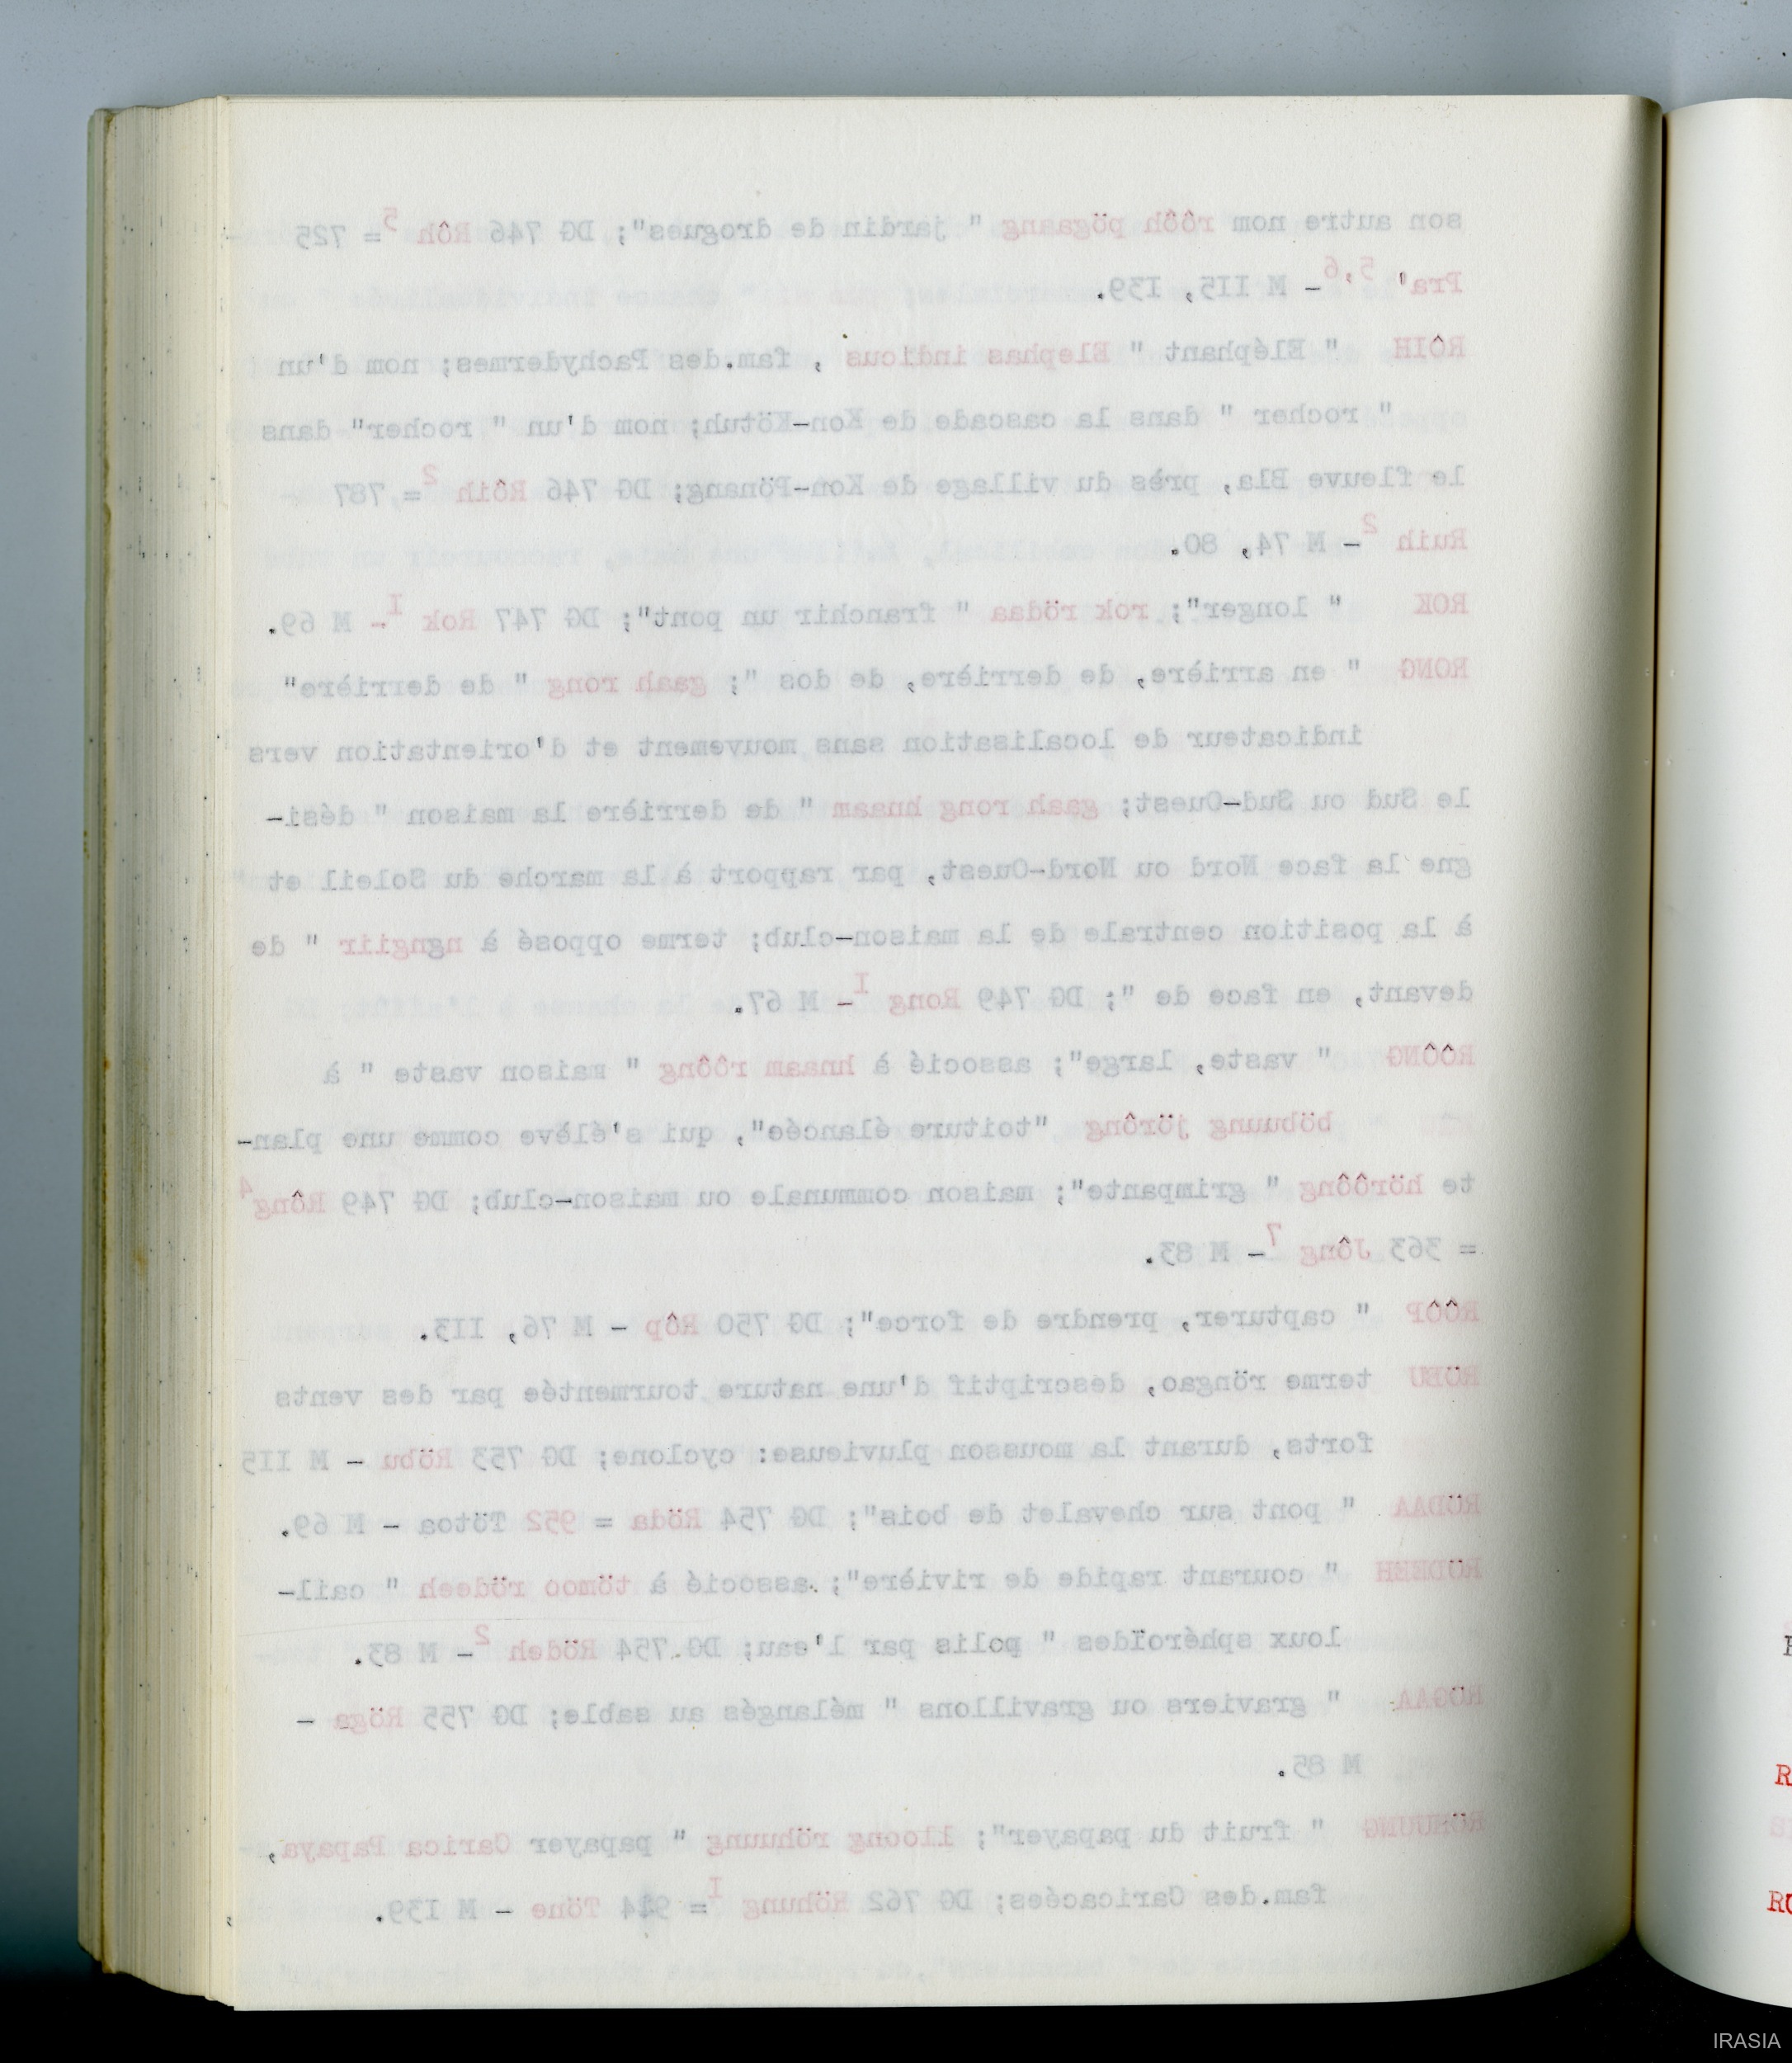 son autre nom rôôh pögaang " jardin de drogues"; DG 746 Rôh 5= 725
Pra' 5,6- M II5, I39.
RÔIH " Eléphant " Elephas indicus , fam.des Pachydermes; nom d'un
" rocher " dans la cascade de Kon-Kötuh; nom d'un " rocher" dans
le fleuve Bla, près du village de Kon-Pönang; DG 746 Rôih 2= 787
Ruih 2- M 74, 80.
ROK " longer"; rok rödaa " franchir un pont"; DG 747 Rok I- M 69.
RONG " en arrière, de derrière, de dos "; gaah rong " de derrière"
indicateur de localisation sans mouvement et d'orientation vers
le Sud ou Sud-Ouest; gaah rong hnaam " de derrière la maison " dési-
gne la face Nord ou Nord-Ouest, par rapport à la marche du Soleil et
à la position centrale de la maison-club; terme opposé à ngngiir " de
devant, en face de "; DG 749 Rong I- M 67.
RÔÔNG " vaste, large"; associé à hnaam rôông " maison vaste " à
böbuung jörông "toiture élancée", qui s'élève comme une plan-
te hörôông " grimpante"; maison communale ou maison-club; DG 749 Rông 4
= 363 Jông 7- M 83.
RÔÔP " capturer, prendre de force"; DG 750 Rôp - M 76, II3.
RÖBU terme röngao, descriptif d'une nature tourmentée par des vents
forts, durant la mousson pluvieuse: cyclone; DG 753 Röbu - M II5
RÖDAA " pont sur chevalet de bois"; DG 754 Röda = 952 Tötoa - M 69.
RÖDEEH " courant rapide de rivière"; associé à tömoo rödeeh " cail-
loux sphéroïdes " polis par l'eau; DG 754 Rödeh 2- M 83.
RÖGAA " graviers ou gravillons " mélangés au sable; DG 755 Röga -
M 85.
RÖHUUNG " fruit du papayer"; lloong röhuung " papayer Carica Papaya,
fam.des Caricacées; DG 762 Röhung I= 944 Töne - M I39.